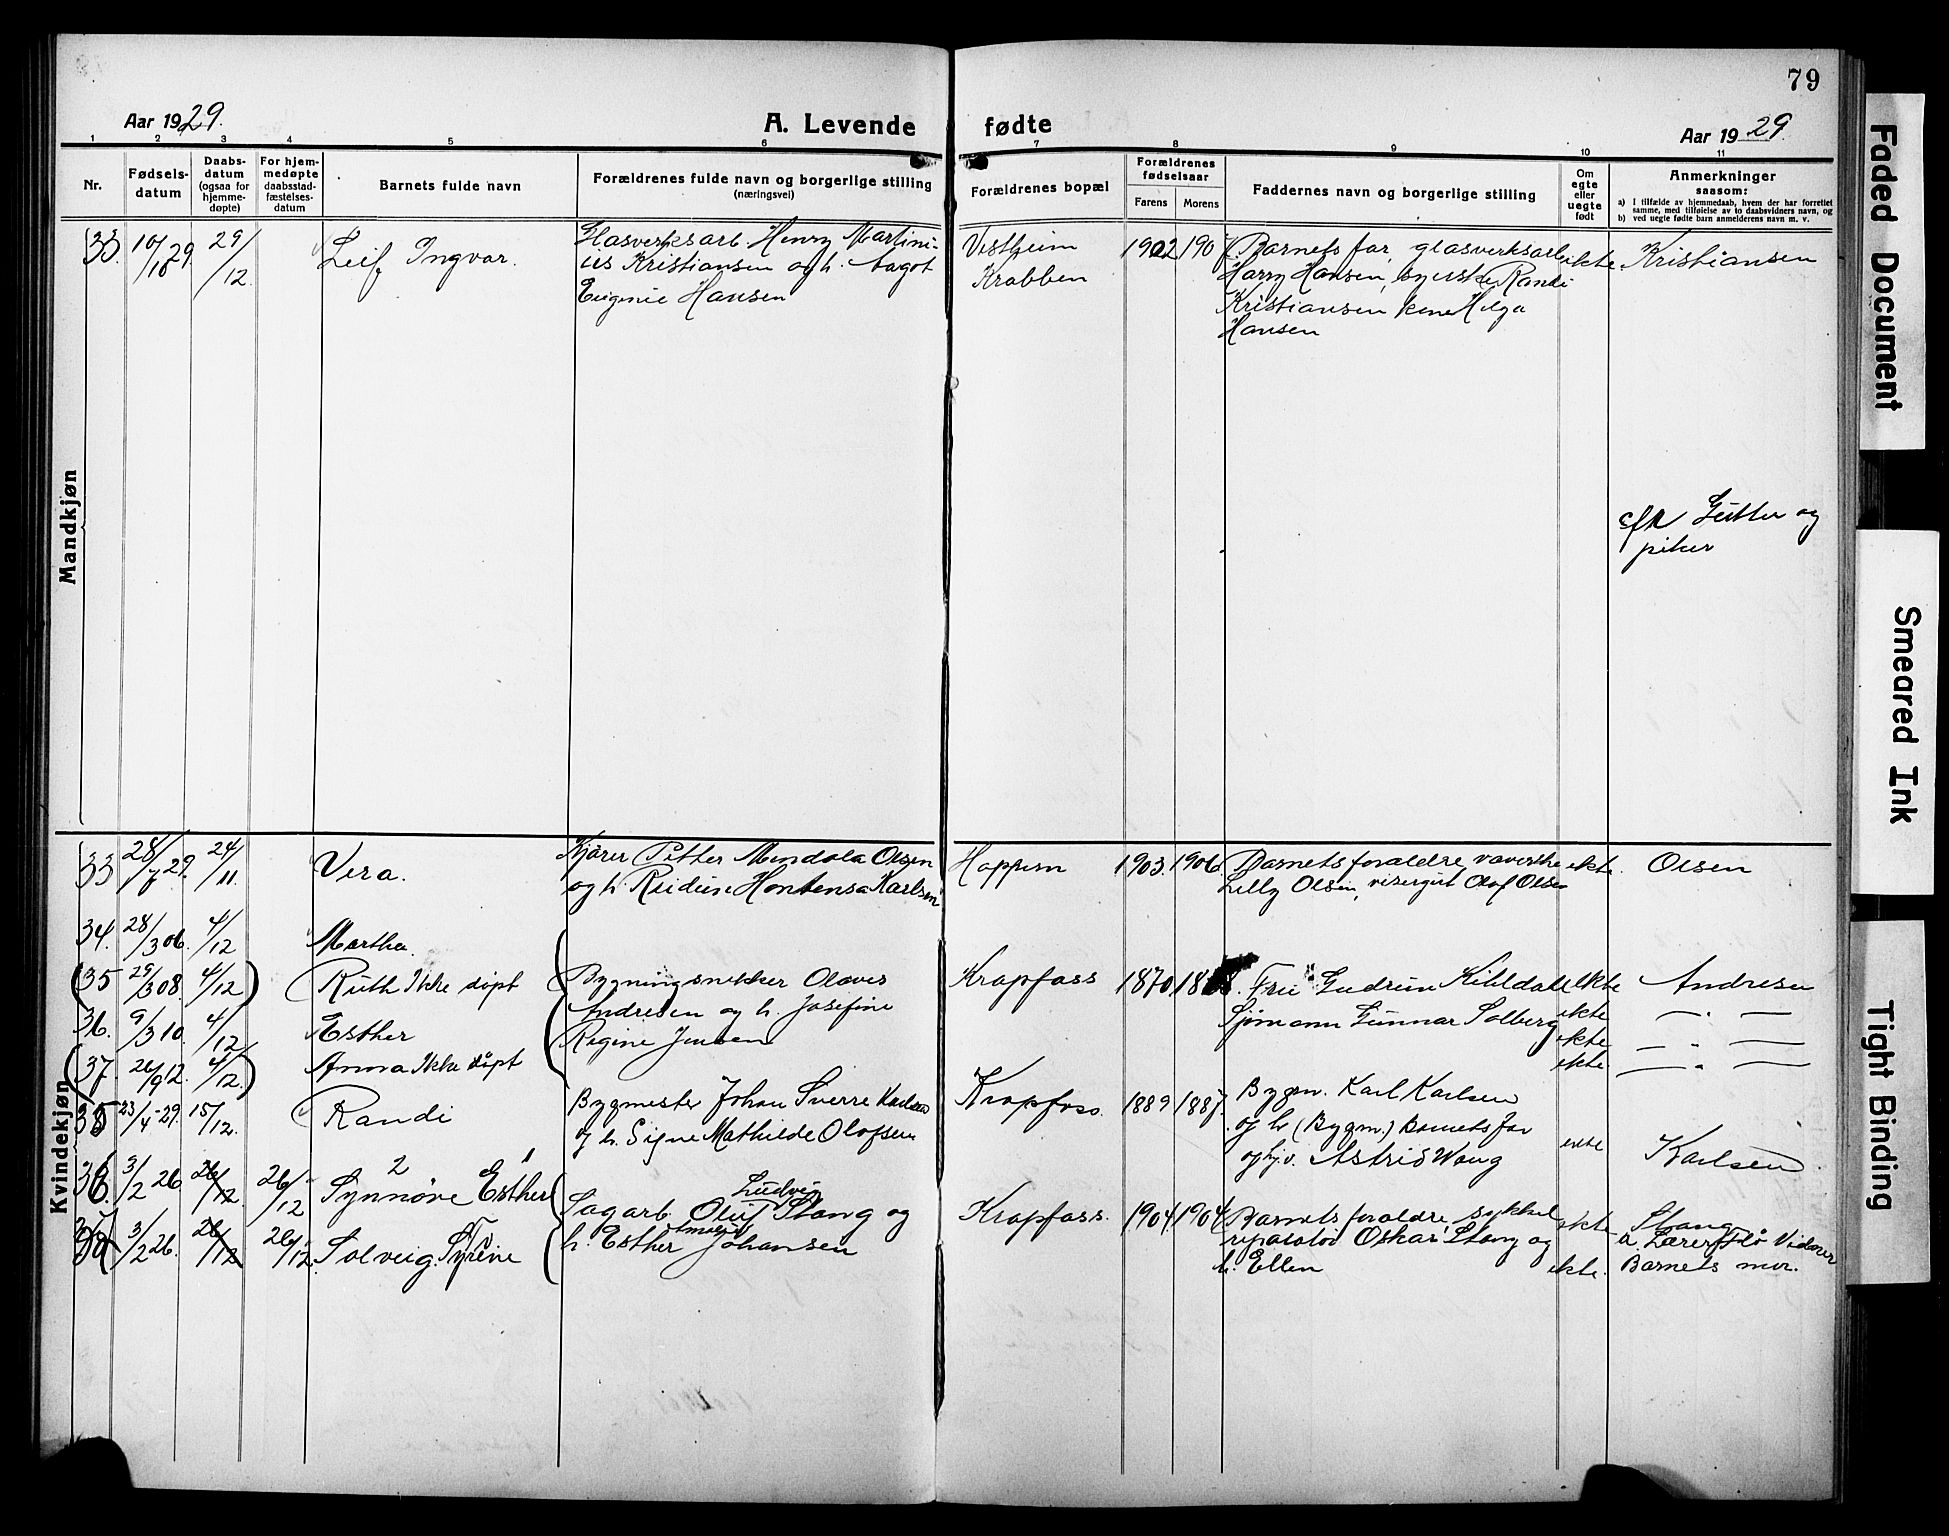 79
Aar 1929.
A. Levende fødte
Aar 1929.
1 2 3 4 5 6 7 8 9 10 11
Nr.
Fødsels-
datum
Daabs-
datum
(ogsaa for
hjemme-
døpte)
For hjem-
medøpte
daabsstad-
fæstelses-
datum
Barnets fulde navn
Forældrenes fulde navn og borgerlige stilling
(næringsvei)
Forældrenes bopæl
Forældrenes
fødselsaar
Farens
Morens
Faddernes navn og borgerlige stilling
Om
egte
eller
uegte
født
Anmerkninger
saasom:
a) I tilfælde av hjemmedaab, hvem der har forrettet
samme, med tilføielse av to daabsvidners navn, og
b) ved uegte født barn anmelderens navn m. v.
Mandkjøn
33. 10/10 29. 29/12 Leif Ingvar.
Glasverksarb Henry Martini-
us Kristiansen og h. Aagot
Eugenie Hansen
Vestheim
Krabben
1902 190
Barnets far, glasverksarb
Harry Hansen, syerske Randi
Kristiansen Helga
Hansen
ekte. Kristiansen
Gutter og
piker
Kvindekjøn
33 28/7 29. 24/11. Vera.
Kjører Petter Mendola Olsen
og h. Reidun Hontensa Karlsen
Hoppern 1903. 1906.
Barnets foraldre, væverske
Lilly Olsen, visergut Olaf Olsen
ekte. Olsen
34. 28/3 06. 4/12 Martha.
(35 29/3 08. 4/12) Ruth Ikke døpt
36. 9/3 10. 4/12 Esther
(37. 26/9 12. 4/12.) Anna Ikke døpt
Bygningsnekker Olaves
Andresen og h. Josefine
Regine Jensen
Krapfoss 1870
Fru Gudrun Kihldahl
Sjømann Gunnar Solberg
ekte Andresen
ekte — " —
ekte — " —
ekte — " —
35 23/4 29. 15/12. Randi
Bygmester Johan Sverre Karlsen
og h. Signe Mathilde Olofsen
Krapfoss. 1889 1887.
Bygm. Karl Karlsen
og h (Bygm.) Barnets far
og hj.v. Astrid Wang
ekte Karlsen
36. 3/2 26. 26/12 26/12 2 Synnøve Esther 1
37 3/2 26. 26/12 26/12. Solveig Syrene
Sagarb. Oluf Ludvig Stang og
h. Esther Amalie Johansen
Krapfoss. 1904 1904
Barnets foraldre, sykkel
reparatør Oskar Stang og
h. Ellen
ekte
ekte.
Stang
a. Lærer Flø Vidner
Barnets mor.
Faded Document
Smeared Ink
Tight Binding